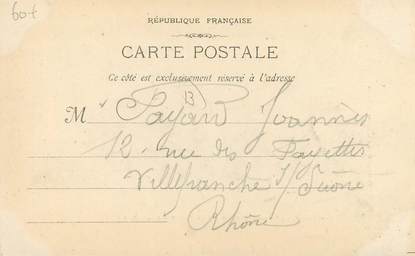 60+
RÉPUBLIQUE FRANÇAISE
CARTE POSTALE
Ce côté est exclusivement réservé à l'adresse
13
M Payard Joannès
12 rue des Fayettes
Villefranche s/ Saône
Rhône